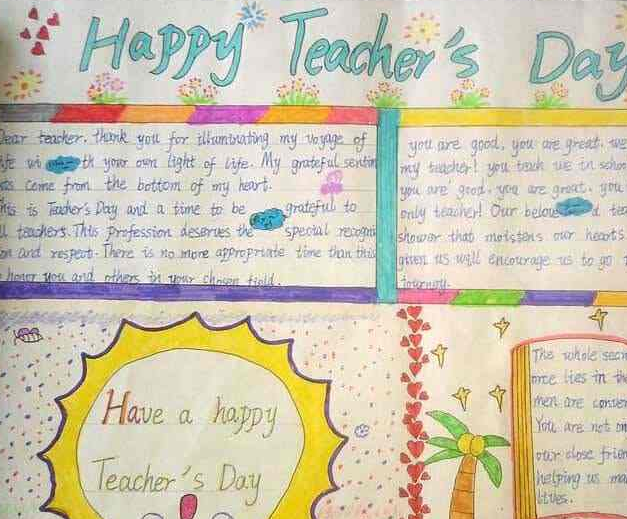 Happy Teacher's Day
Dear teacher, thank you for illuminating my voyage of
ife wi th your own light of life. My grateful sentim
ts come from the bottom of my heart.
his is Teacher's Day and a time to be grateful to
ll teachers. This profession deserves the special recogni
on and respect. There is no more appropriate time than this
honor you and others in your chosen field.
you are good, you are great, we
my teacher! you teach we in schoo
you are good, you are great, you
only teacher! Our belove d tea
shower that moistens our hearts
given us will encourage us to go
journey.
Have a happy
Teacher's Day
The whole secr
once lies in th
men are conver
You are not on
our close frien
helping us ma
lives.